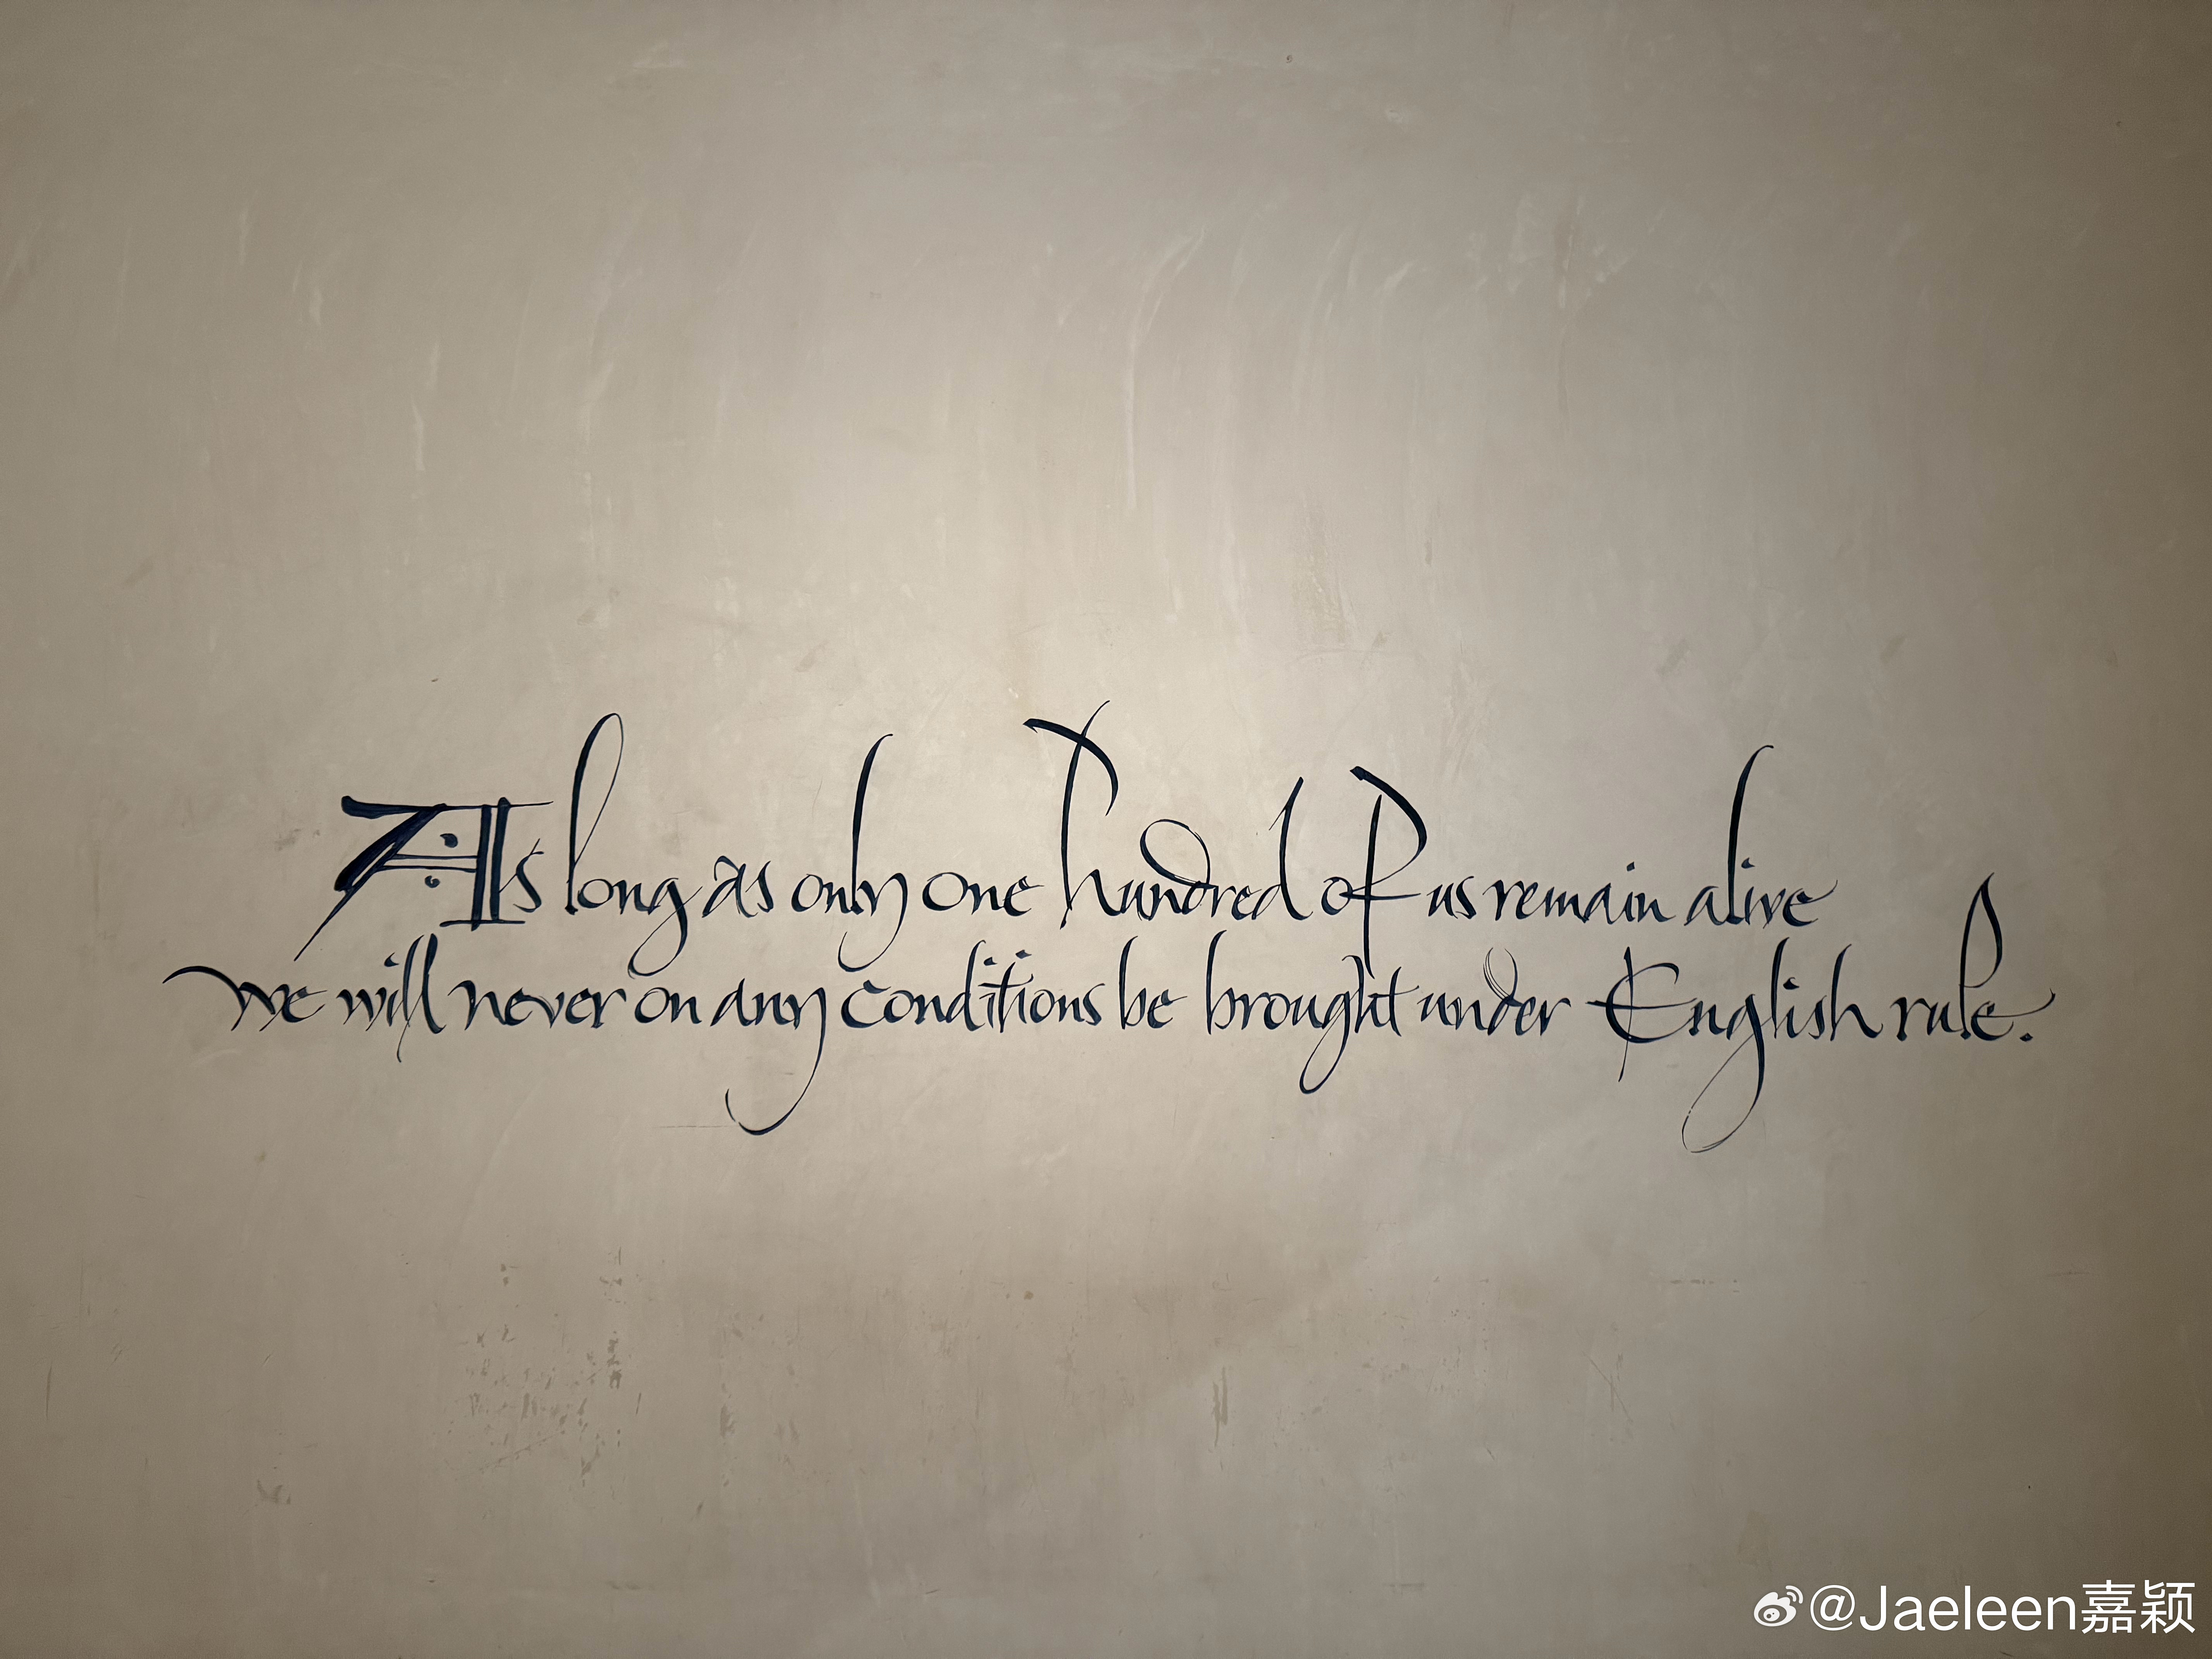 As long as only one hundred of us remain alive
we will never on any conditions be brought under English rule.
@Jaeleen嘉颖